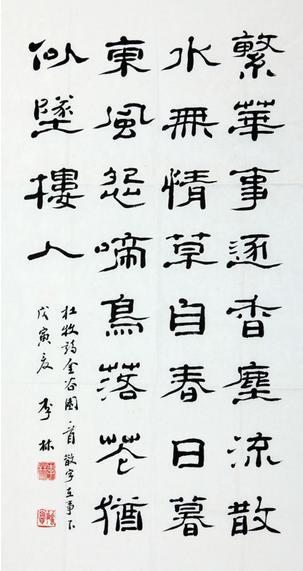 繁華事逐香塵流散
水無情草自春日暮
東風怨啼鳥落花猶
似墜樓人
杜牧詩金谷園一首 散字在事下
戊寅夏 李林